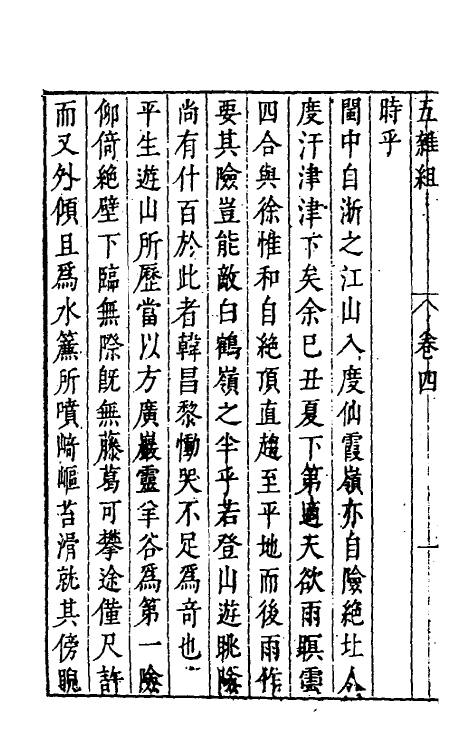 五雜組 卷四 一
時乎
閩中自浙之江山入度仙霞嶺亦自險絶北人
度汗津津下矣余己丑夏下第適天欲雨暝雲
四合與徐惟和自絶頂直趨至平地而後雨作
要其險豈能敵白鶴嶺之半乎若登山遊眺險
尚有什百於此者韓昌黎慟哭不足爲奇也
平生遊山所歷當以方廣巖靈羊谷爲第一險
仰倚絶壁下臨無際旣無藤葛可攀途僅尺許
而又外傾且爲水簾所噴崎嶇苔滑就其傍睨